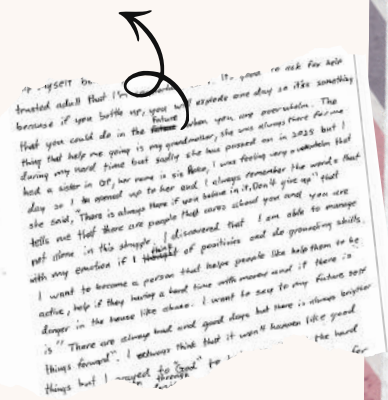 myself
trusted adult that I'm It's good to ask for help
because if you bottle up, you will explode one day so it's something
that you could do in the future when you are overwhelm. The
thing that help me going is my grandmother, she was always there for me
during my hard time but sadly she has passed on in 2025 but I
had a sister in her name is sis I was feeling very overwhelm that
day so I opened up to her and I always remember the words that
she said, "There is always there if you believe in it, Don't give up" that
tells me that there are people that cares about you and you are
not alone in this struggle. I discovered that I am able to manage
with my emotion if I think of positives and do grounding skills.
I want to become a person that helps people like help them to be
active, help if they having a hard time with moved and if there is
danger in the house like abuse. I want to say to my future self
is "There are always bad and good days but there is always brighter
things forward". I always think that it won't happen like good
things but I prayed to "God" to the hard
through for